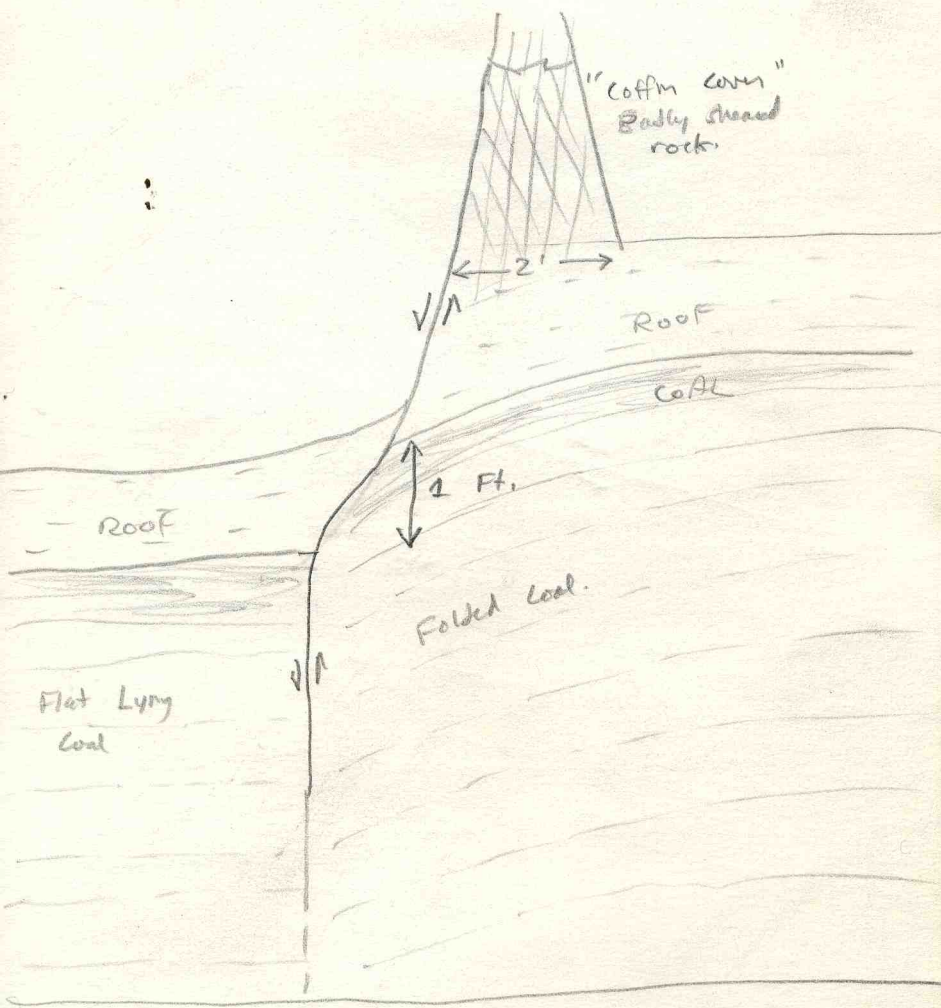 "Coffin Cover"
Badly sheared
rock.
2'
ROOF
COAL
1 Ft.
ROOF
Folded Coal.
Flat Lying
Coal